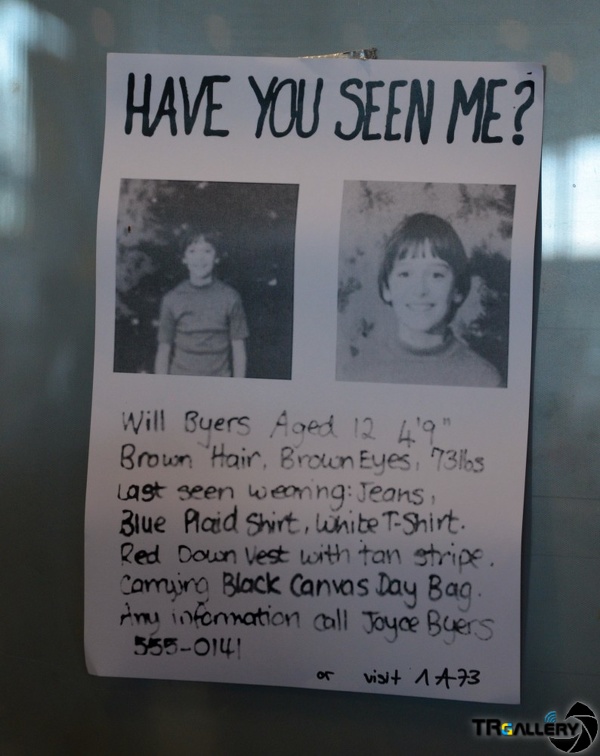 HAVE YOU SEEN ME?
Will Byers Aged 12 4'9"
Brown Hair, Brown Eyes, 73lbs
Last seen wearing: Jeans,
Blue Plaid Shirt, White T-Shirt.
Red Down Vest with tan stripe.
Carrying Black Canvas Day Bag.
Any information call Joyce Byers
555-0141
or visit 1A73
TRGALLERY